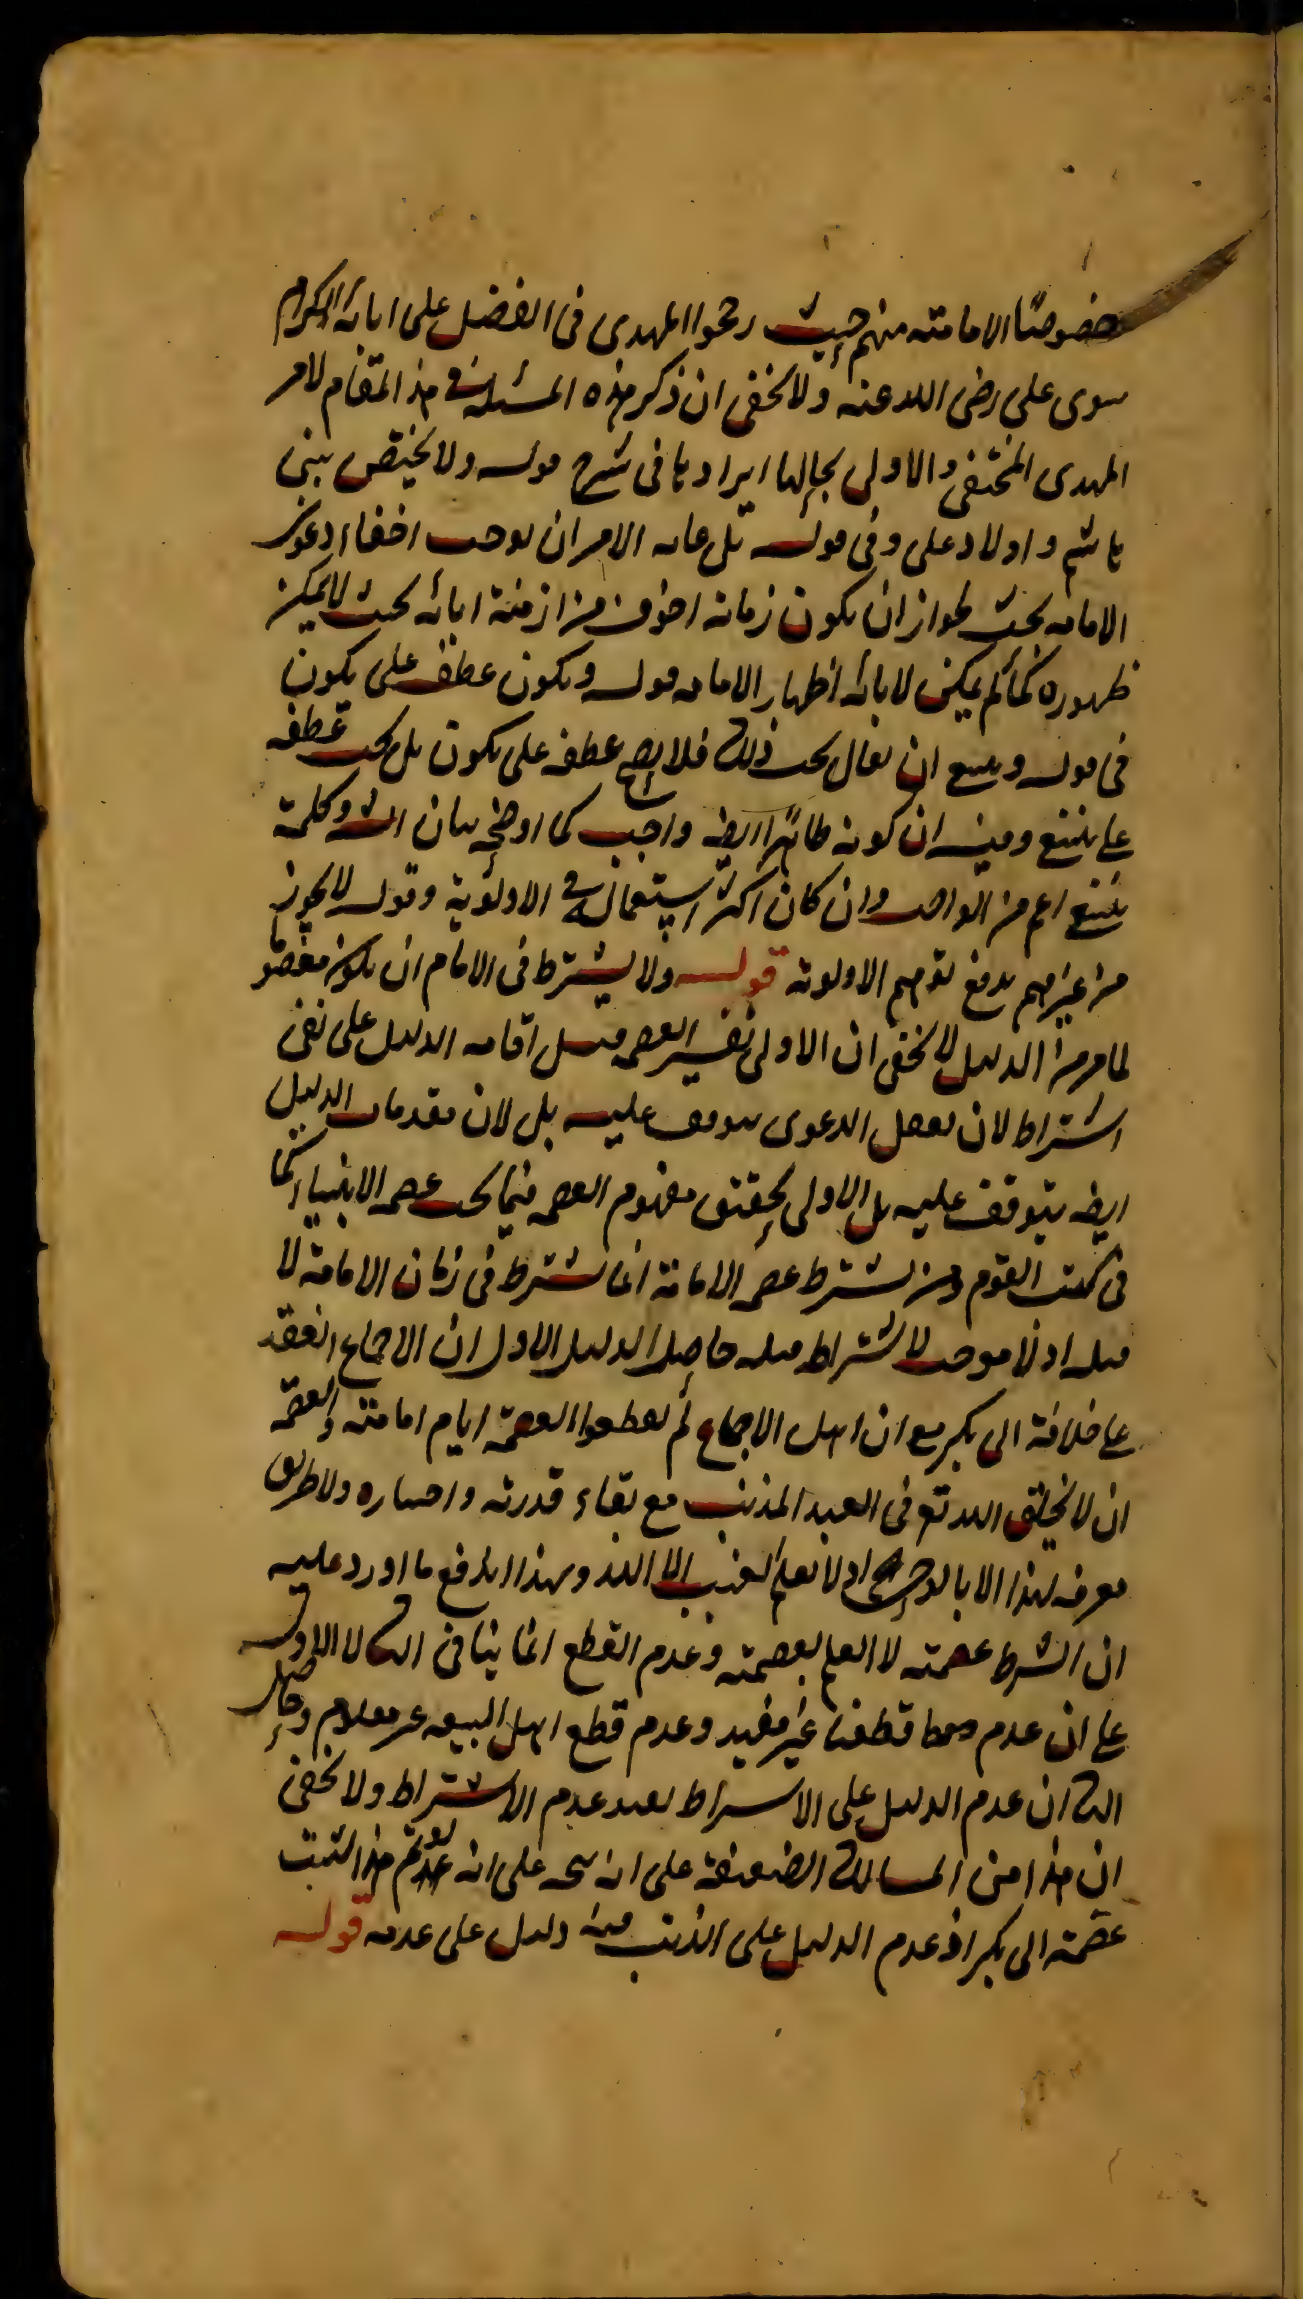 خصوصًا الامامته منهم حيث رجحوا المهدى فى الفضل على ابائه الكرام
سوى على رضى الله عنه ولا يخفى ان ذكر هذه المسئلة فى هذا المقام لامر
المهدى المختفى والاولى بحالها ايرادها فى شرح قوله ولا يختص ببنى
هاشم واولاد على وفى قوله بل غاية الامر ان يوجب اخفاء دعوى
الامامه بحث لجواز ان يكون زمانه اخوف من ازمنة ابائه بحيث لا يمكن
ظهوره كما لم يمكن لابائه اظهار الامامه قوله ويكون عطف على يكون
فى قوله وينبغى ان يقال بحث ذلك فلا يصح عطفه على يكون بل يجب عطفه
على ينبغى وفيه ان كونه ظاهرا ايضه واجب كما اوضحه بيان الش وكلمة
ينبغى اعم من الواجب وان كان اكثر استعماله فى الاولوية وقوله لا يجوز
من غيرهم يدفع توهم الاولويه قوله ولا يشترط فى الامام ان يكون معصوما
لما مر من الدليل لا يخفى ان الاولى تفسير العصمه قبل اقامه الدليل على نفى
اشتراط لان تعقل الدعوى يتوقف عليه بل لان مقدمات الدليل
ايضه يتوقف عليه بل الاولى تحقيق مفهوم العصمه فى بحث عصمه الانبياء كما
فى كتب القوم ومن يشترط عصمه الامامة انما يشترط فى زمان الامامة لا
قبله اذ لا موجب لاشتراط قبله حاصل الدليل الاول ان الاجماع انعقد
على خلافة ابى بكر مع ان اهل الاجماع لم يقطعوا العصمة ايام امامته والعصمة
ان لا يخلق الله تع فى العبد الذنب مع بقاء قدرته واختياره ولا طريق
معرفه لهذا الا بالوحى اذ لا يعلم الغيب الا الله وبهذا اندفع ما اورد عليه
ان الشرط عصمته لا العلم بعصمته وعدم القطع انما ينافى الثانى لا الاول
على ان عدم قطعنا غير مفيد وعدم قطع اهل البيعه غير معلوم وحاصل
الثانى ان عدم الدليل على الاشتراط يفيد عدم الاشتراط ولا يخفى
ان هذا من المسالك الضعيفة على انه على انه لو تم هذا لثبت
عصمة ابى بكر اذ عدم الدليل على الذنب فيه دليل على عدمه قوله